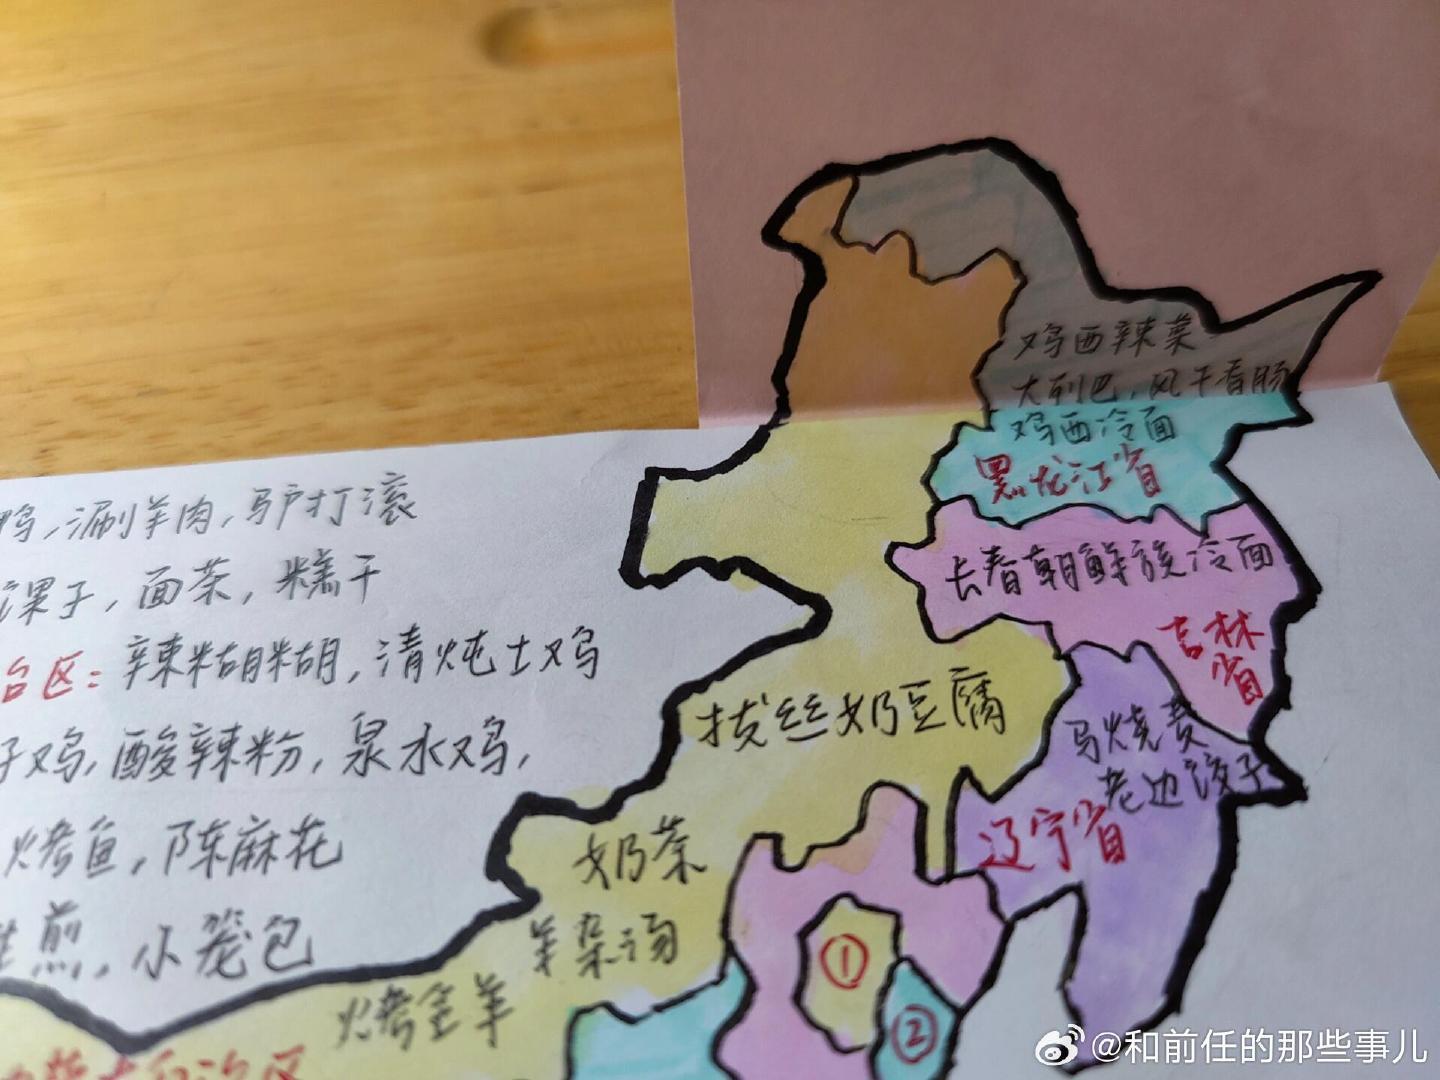 鸡西辣菜
大列巴，风干香肠
鸡西冷面
黑龙江省
鸭，涮羊肉，驴打滚
果子，面茶，糕干
长春朝鲜族冷面
吉林省
台区：辣糊糊，清炖土鸡
拔丝奶豆腐
马烧麦
老边饺子
辽宁省
子鸡，酸辣粉，泉水鸡，
烤鱼，陈麻花
奶茶
生煎，小笼包
羊杂汤
①
烤全羊
②
自治区
@和前任的那些事儿